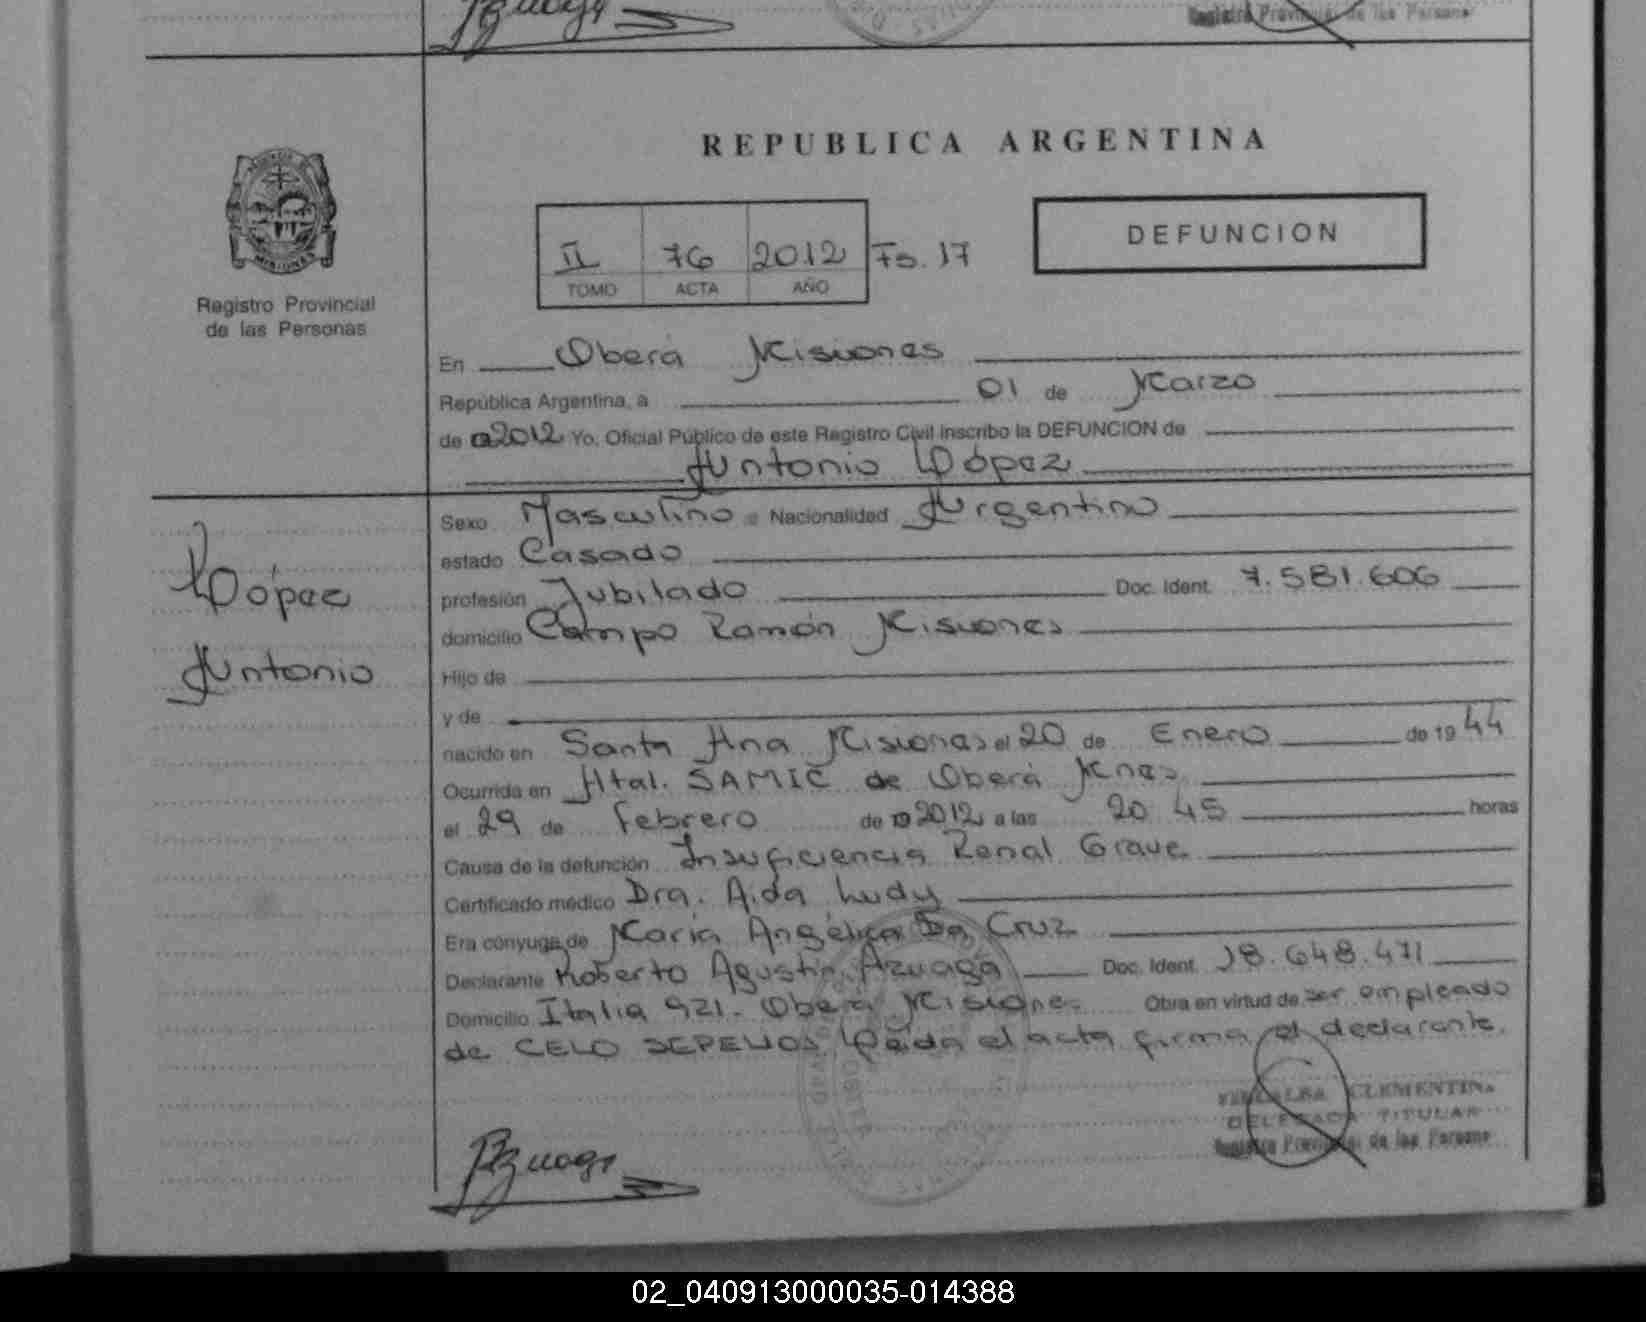 Registro Provincial de las Personas
REPUBLICA ARGENTINA
DEFUNCION
II 76 2012 Fo. 17
TOMO ACTA AÑO
Registro Provincial
de las Personas
En Oberá Misiones
República Argentina, a 01 de Marzo
de 2012 Yo, Oficial Público de este Registro Civil inscribo la DEFUNCION de
Antonio López
López
Antonio
Sexo Masculino Nacionalidad Argentino
estado Casado
profesión Jubilado Doc. Ident. 7.581.606
domicilio Campo Ramón Misiones
Hijo de
y de
nacido en Santa Ana Misiones el 20 de Enero de 1944
Ocurrida en Htal. SAMIC de Oberá Mnes
el 29 de Febrero de 2012 a las 20 45 horas
Causa de la defunción Insuficiencia Renal Grave
Certificado médico Dra. Aida Ludy
Era cónyuge de María Angélica Da Cruz
Declarante Roberto Agustín Azuaga Doc. Ident. 18.648.471
Domicilio Italia 921. Oberá Misiones Obra en virtud de ser empleado
de CELO SEPELIOS. Leída el acta firma el declarante.
VILLALBA CLEMENTINA
DELEGADA TITULAR
Registro Provincial de las Personas
Azuaga
02_040913000035-014388